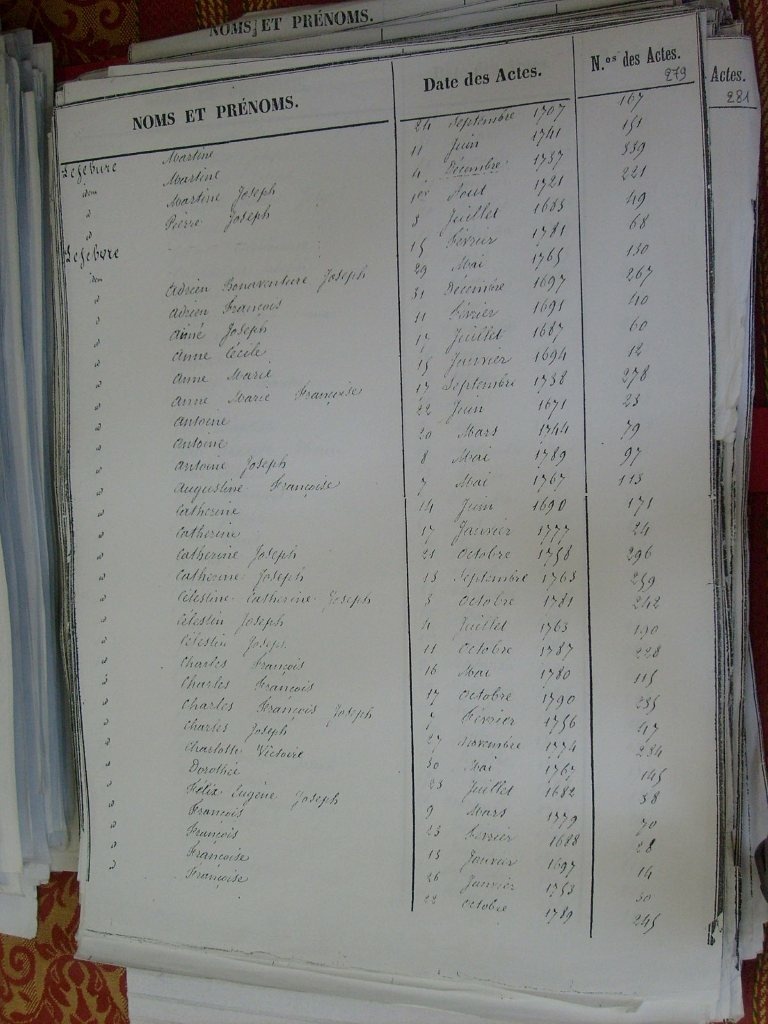 NOMS ET PRÉNOMS.
NOMS ET PRÉNOMS.
Lefebure Martine
idem Martine
" Martine Joseph
" Pierre Joseph
Lefebvre
idem Adrien Bonaventure Joseph
" Adrien François
" Aimé Joseph
" Anne Cécile
" Anne Marie
" Anne Marie Françoise
" Antoine
" Antoine
" Antoine Joseph
" Augustine Françoise
" Catherine
" Catherine
" Catherine Joseph
" Catherine Joseph
" Célestine Catherine Joseph
" Célestin Joseph
" Célestin Joseph
" Charles François
" Charles François
" Charles François Joseph
" Charles Joseph
" Charlotte Victoire
" Dorothée
" Félix Eugène Joseph
" François
" François
" Françoise
" Françoise
Date des Actes.
24 Septembre 1707
11 Juin 1741
4 Décembre 1737
1er Aout 1721
8 Juillet 1683
15 Février 1781
29 Mai 1765
31 Décembre 1697
11 Février 1691
17 Juillet 1687
15 Janvier 1694
17 Septembre 1738
22 Juin 1671
20 Mars 1744
8 Mai 1789
7 Mai 1767
14 Juin 1690
17 Janvier 1777
21 Octobre 1758
13 Septembre 1763
3 Octobre 1781
4 Juillet 1763
11 Octobre 1787
16 Mai 1780
17 Octobre 1790
7 Février 1756
27 Novembre 1774
30 Mai 1767
23 Juillet 1682
9 Mars 1779
23 Février 1688
13 Janvier 1697
26 Janvier 1753
22 Octobre 1789
N.os des Actes.
279
167
151
339
221
49
68
130
267
40
60
12
278
23
79
97
113
171
24
296
259
242
190
228
115
235
47
284
145
38
70
28
14
30
245
Actes.
281